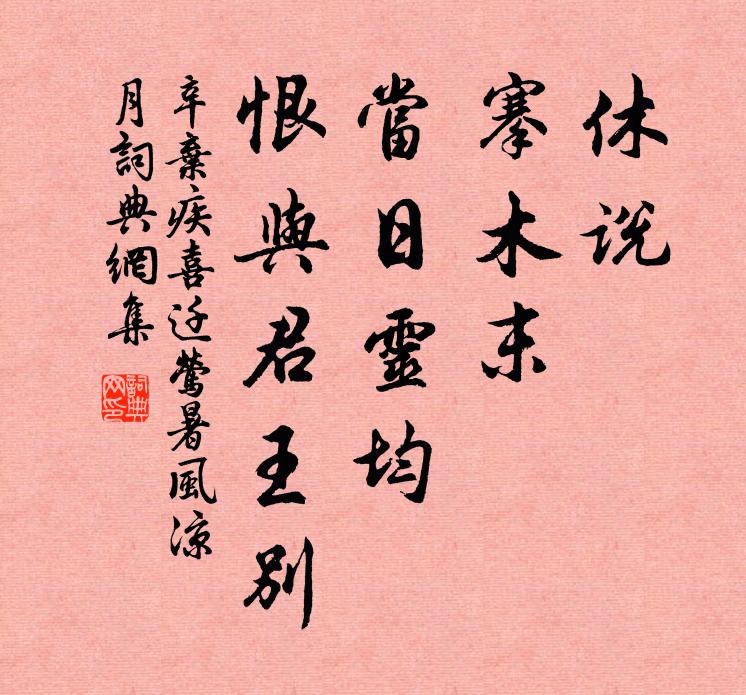 休说
搴木末
當日靈均
恨與君王別
辛棄疾喜迁鶯暑風凉
月詞典網集
詞典网印